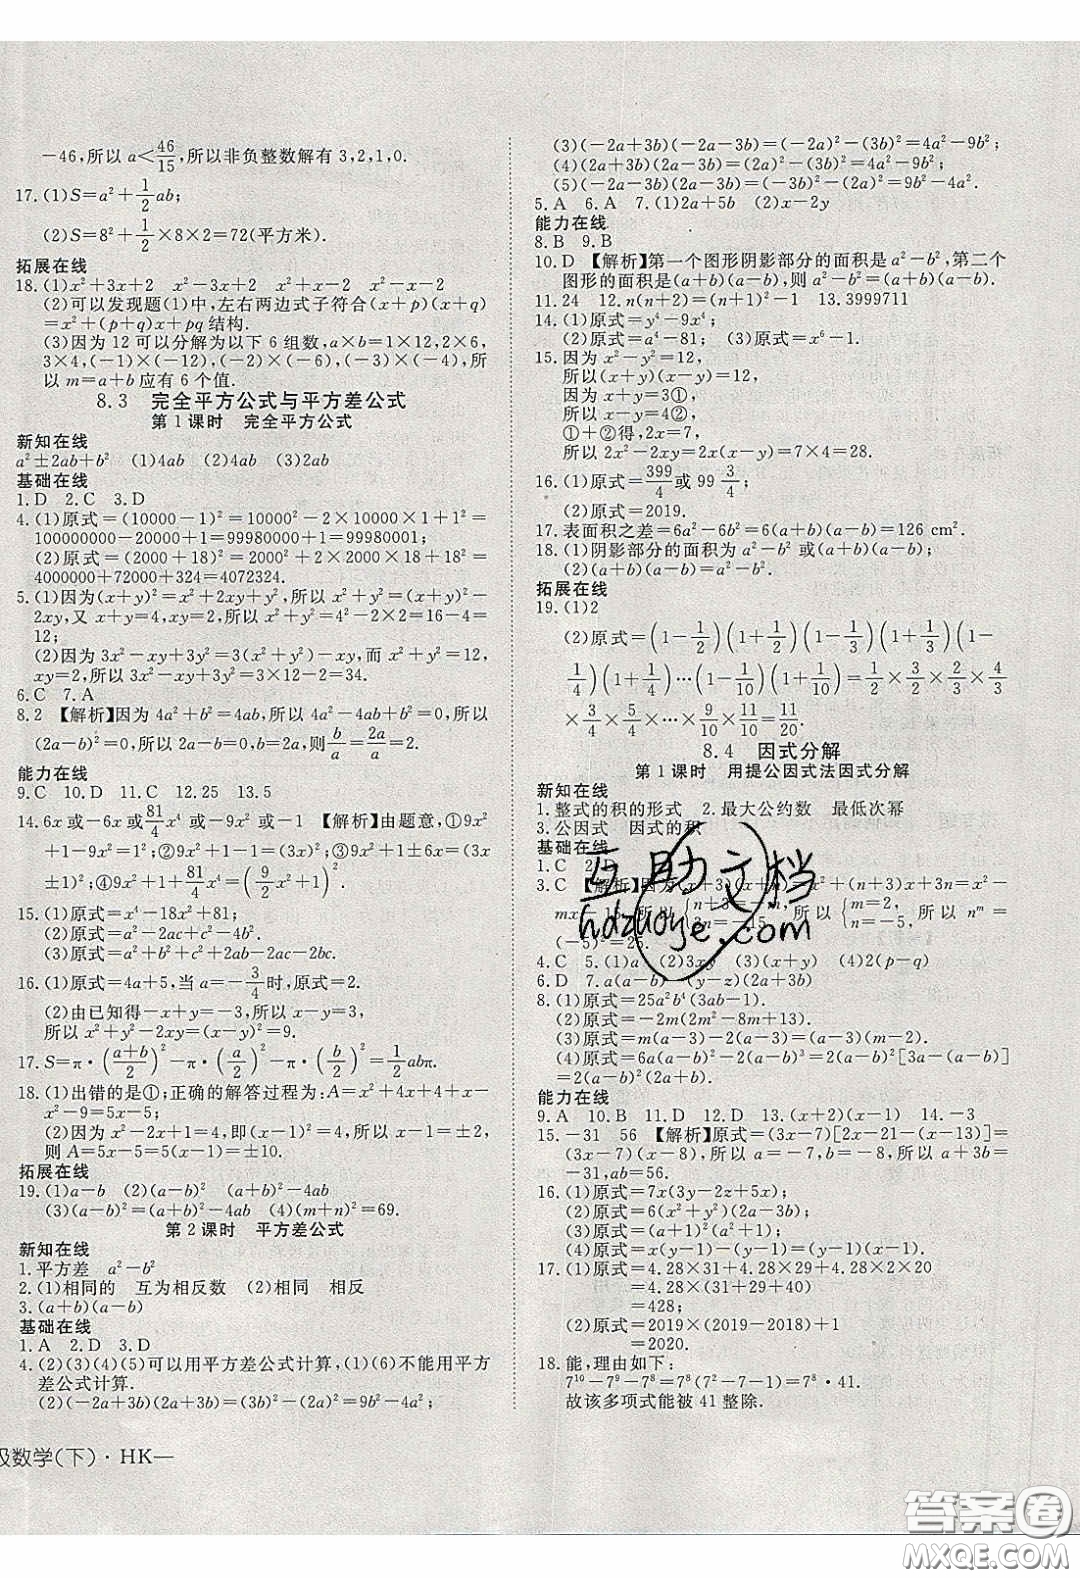 -46,所以 a<46/15,所以非负整数解有 3,2,1,0.
17.(1)S=a²+1/2ab;
(2)S=8²+1/2×8×2=72(平方米).
拓展在线
18.(1)x²+3x+2 x²-3x+2 x²+x-2 x²-x-2
(2)可以发现题(1)中,左右两边式子符合(x+p)(x+q)
=x²+(p+q)x+pq 结构.
(3)因为 12 可以分解为以下 6 组数,a×b=1×12,2×6,
3×4,(-1)×(-12),(-2)×(-6),(-3)×(-4),所
以 m=a+b 应有 6 个值.
8.3 完全平方公式与平方差公式
第1课时 完全平方公式
新知在线
a²±2ab+b² (1)4ab (2)4ab (3)2ab
基础在线
1.D 2.C 3.D
4.(1)原式=(10000-1)²=10000²-2×10000×1+1²=
100000000-20000+1=99980000+1=99980001.
(2)原式=(2000+18)²=2000²+2×2000×18+18²=
4000000+72000+324=4072324.
5.(1)因为(x+y)²=x²+2xy+y²,所以 x²+y²=(x+y)²-
2xy,又 x+y=4,xy=2,所以 x²+y²=4²-2×2=16-4=
12;
(2)因为 3x²-xy+3y²=3(x²+y²)-xy,而 x²+y²=12,
xy=2,所以 3x²-xy+3y²=3×12-2=34.
6.C 7.A
8.2 【解析】因为 4a²+b²=4ab,所以 4a²-4ab+b²=0,所以
(2a-b)²=0,所以 2a-b=0,b=2a,则b/a=2a/a=2.
能力在线
9.C 10.D 11.C 12.25 13.5
14.6x 或-6x 或81/4x⁴ 或-9x² 或-1 【解析】由题意,①9x²
+1-9x²=1²;②9x²+1-1=(3x)²;③9x²+1±6x=(3x
±1)²;④9x²+1+81/4x⁴=(9/2x²+1)².
15.(1)原式=x⁴-18x²+81;
(2)原式=a²-2ac+c²-4b².
(3)原式=a²+b²+c²+2ab-2ac-2bc.
16.(1)原式=4a+5,当 a=-3/4时,原式=2.
(2)由已知得-x+y=-3,所以 x-y=3,
所以 x²+y²-2xy=(x-y)²=9.
17.S=π·((a+b)/2)²-π·(a/2)²-π·(b/2)²=1/2abπ.
18.(1)出错的是①;正确的解答过程为:A=x²+4x+4+x
-x²-9=5x-5;
(2)因为 x²-2x+1=4,即(x-1)²=4,所以 x-1=±2,
则 A=5x-5=5(x-1)=±10.
拓展在线
19.(1)a-b (2)(a-b)² (a+b)²-4ab
(3)(a-b)²=(a+b)²-4ab (4)(m+n)²=69.
第2课时 平方差公式
新知在线
1.平方差 a²-b²
2.(1)相同的 互为相反数 (2)相同 相反
3.(a+b)(a-b)
基础在线
1.A 2.D 3.D
4.(2)(3)(4)(5)可以用平方差公式计算,(1)(6)不能用平方
差公式计算.
(2)(-2a+3b)(-2a-3b)=(-2a)²-(3b)²=4a²-9b²;
及数学(下)·HK—
(3)(-2a+3b)(-2a-3b)=(-2a)²-(3b)²=4a²-9b²;
(4)(2a+3b)(2a-3b)=(2a)²-(3b)²=4a²-9b²;
(5)(-2a-3b)(2a-3b)=(-3b)²-(2a)²=9b²-4a².
5.A 6.A 7.(1)2a+5b (2)x-2y
能力在线
8.B 9.B
10.D 【解析】第一个图形阴影部分的面积是 a²-b²,第二个
图形的面积是(a+b)(a-b),则 a²-b²=(a+b)(a-b).
11.24 12.n(n+2)=(n+1)²-1 13.3999711
14.(1)原式=y⁴-9x⁴;
(2)原式=a⁴-81; (3)原式=x⁶-1.
15.因为 x²-y²=12,
所以(x+y)(x-y)=12,
因为 x+y=3①,
所以 x-y=4②,
①+②得,2x=7,
所以 2x²-2xy=2x(x-y)=7×4=28.
16.(1)原式=399/4或 99 3/4;
(2)原式=2019.
17.表面积之差=6a²-6b²=6(a+b)(a-b)=126 cm².
18.(1)阴影部分的面积为 a²-b² 或(a+b)(a-b);
(2)(a+b)(a-b)=a²-b².
拓展在线
19.(1)2
(2)原式=(1-1/2)(1+1/2)(1-1/3)(1+1/3)(1-
1/4)(1+1/4)…(1-1/10)(1+1/10)=1/2×3/2×2/3×4/3
×3/4×5/4×…×9/10×11/10=11/20.
8.4 因式分解
第1课时 用提公因式法因式分解
新知在线
1.整式的积的形式 2.最大公约数 最低次幂
3.公因式 因式的积
基础在线
1.C 2.D
3.C 【解析】因为(x+3)(x+n)=x²+(3+n)x+3n=x²-
mx-15,所以{n+3=-m, 3n=-15,所以{m=2, n=-5,所以 nᵐ=
(-5)²=25.
4.C 5.(1)a (2)3xy (3)(x+y) (4)2(p-q)
6.D 7.a(a-b) (y-z)(x-z)
8.(1)原式=25a²b⁴(3ab-1).
(2)原式=-2m(2m²-8m+13).
(3)原式=m(a-3)(m-1)=(a-3)(m-2).
(4)原式=6a(a-b)²-2(a-b)³=2(a-b)²[3a-(a-b)]
=2(a-b)²(2a+b).
能力在线
9.A 10.B 11.D 12.D 13.(x+2)(x-1) 14.-3
15.-31 56 【解析】原式=(3x-7)[2x-21-(x-13)]=
(3x-7)(x-8),所以 a=-7,b=-8,所以 a+3b=
-31,ab=56.
16.(1)原式=7x(3x-y);
(2)原式=6(x²+y²)(x-2);
(3)原式=(a+1)²(a-3);
(4)原式=x(y-1)-(y-1)=(y-1)(x-1).
17.(1)原式=4.28×31+4.28×29+4.28×2×20
=4.28×(31+29+40)
=428;
(2)原式=2019×(2019-2018)+1
=2020.
18.能,理由如下:
7¹⁰-7⁹-7⁸=7⁸(7²-7-1)=7⁸·41.
故该多项式能被 41 整除.
互助文档
hdzuoye.com
答案圈
MXQE.COM